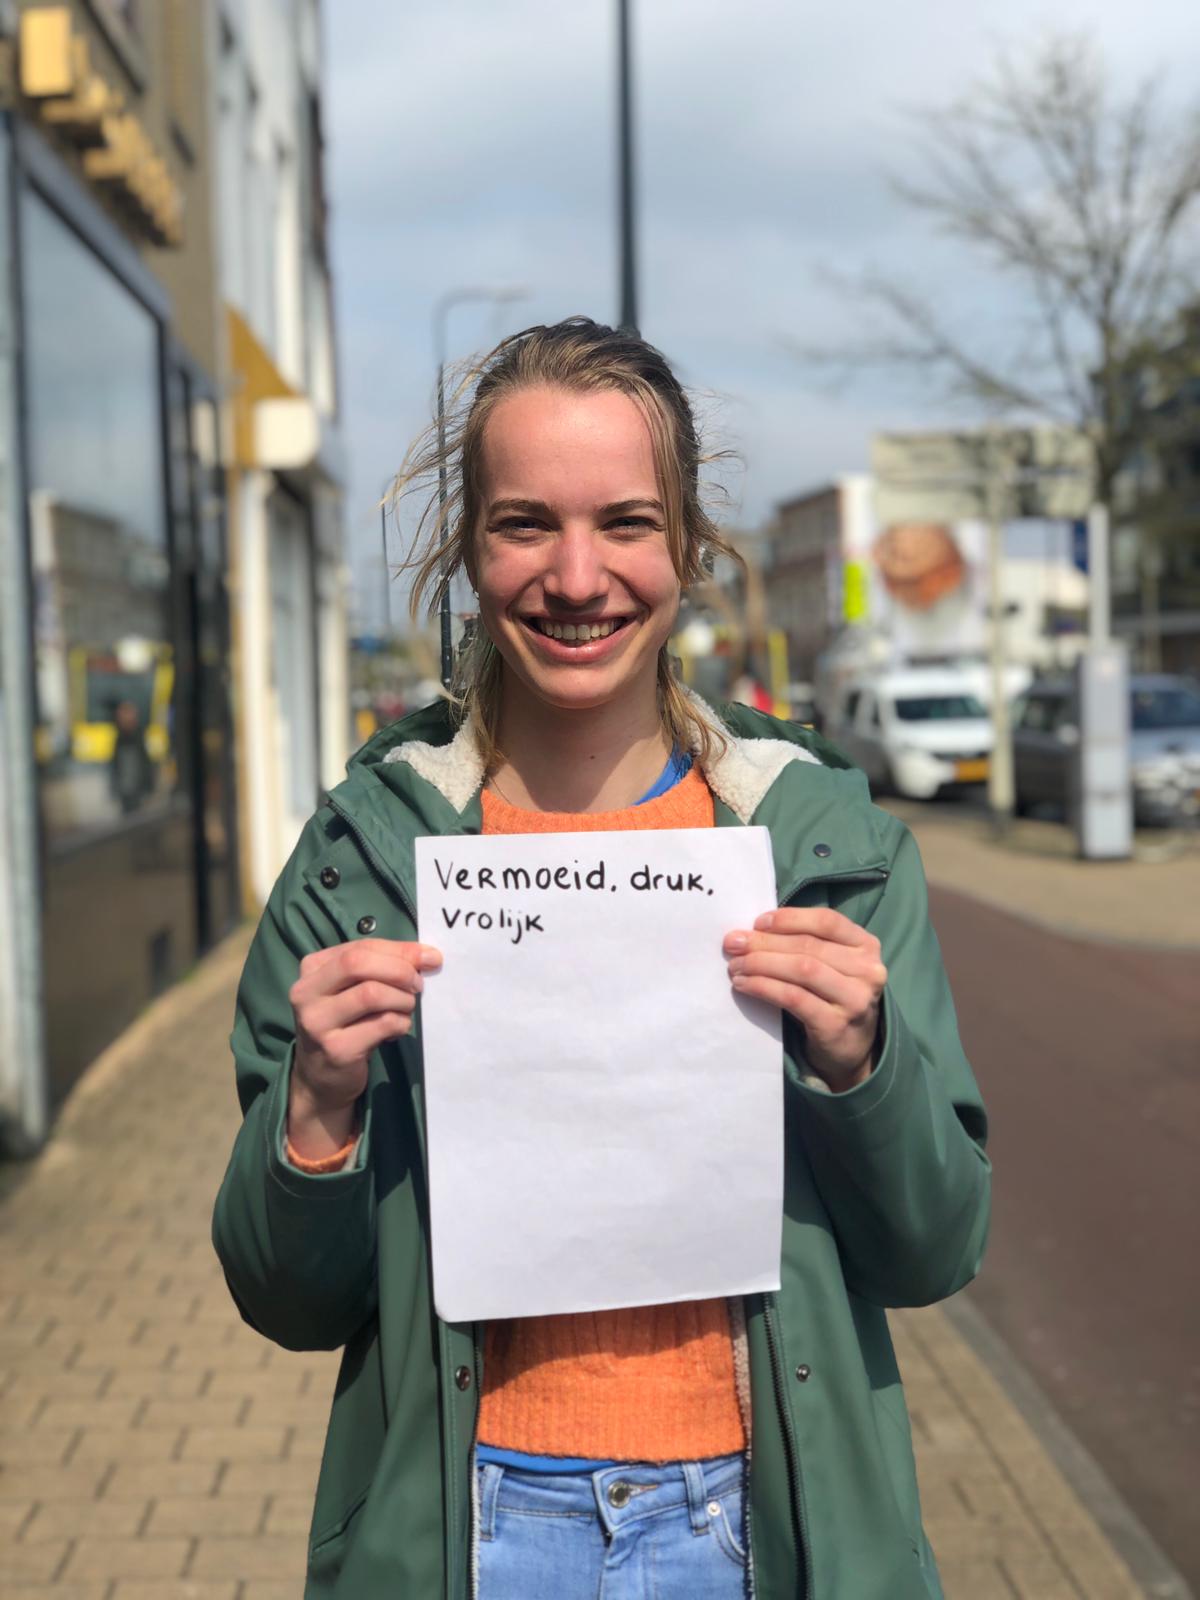 Vermoeid. druk.
vrolijk